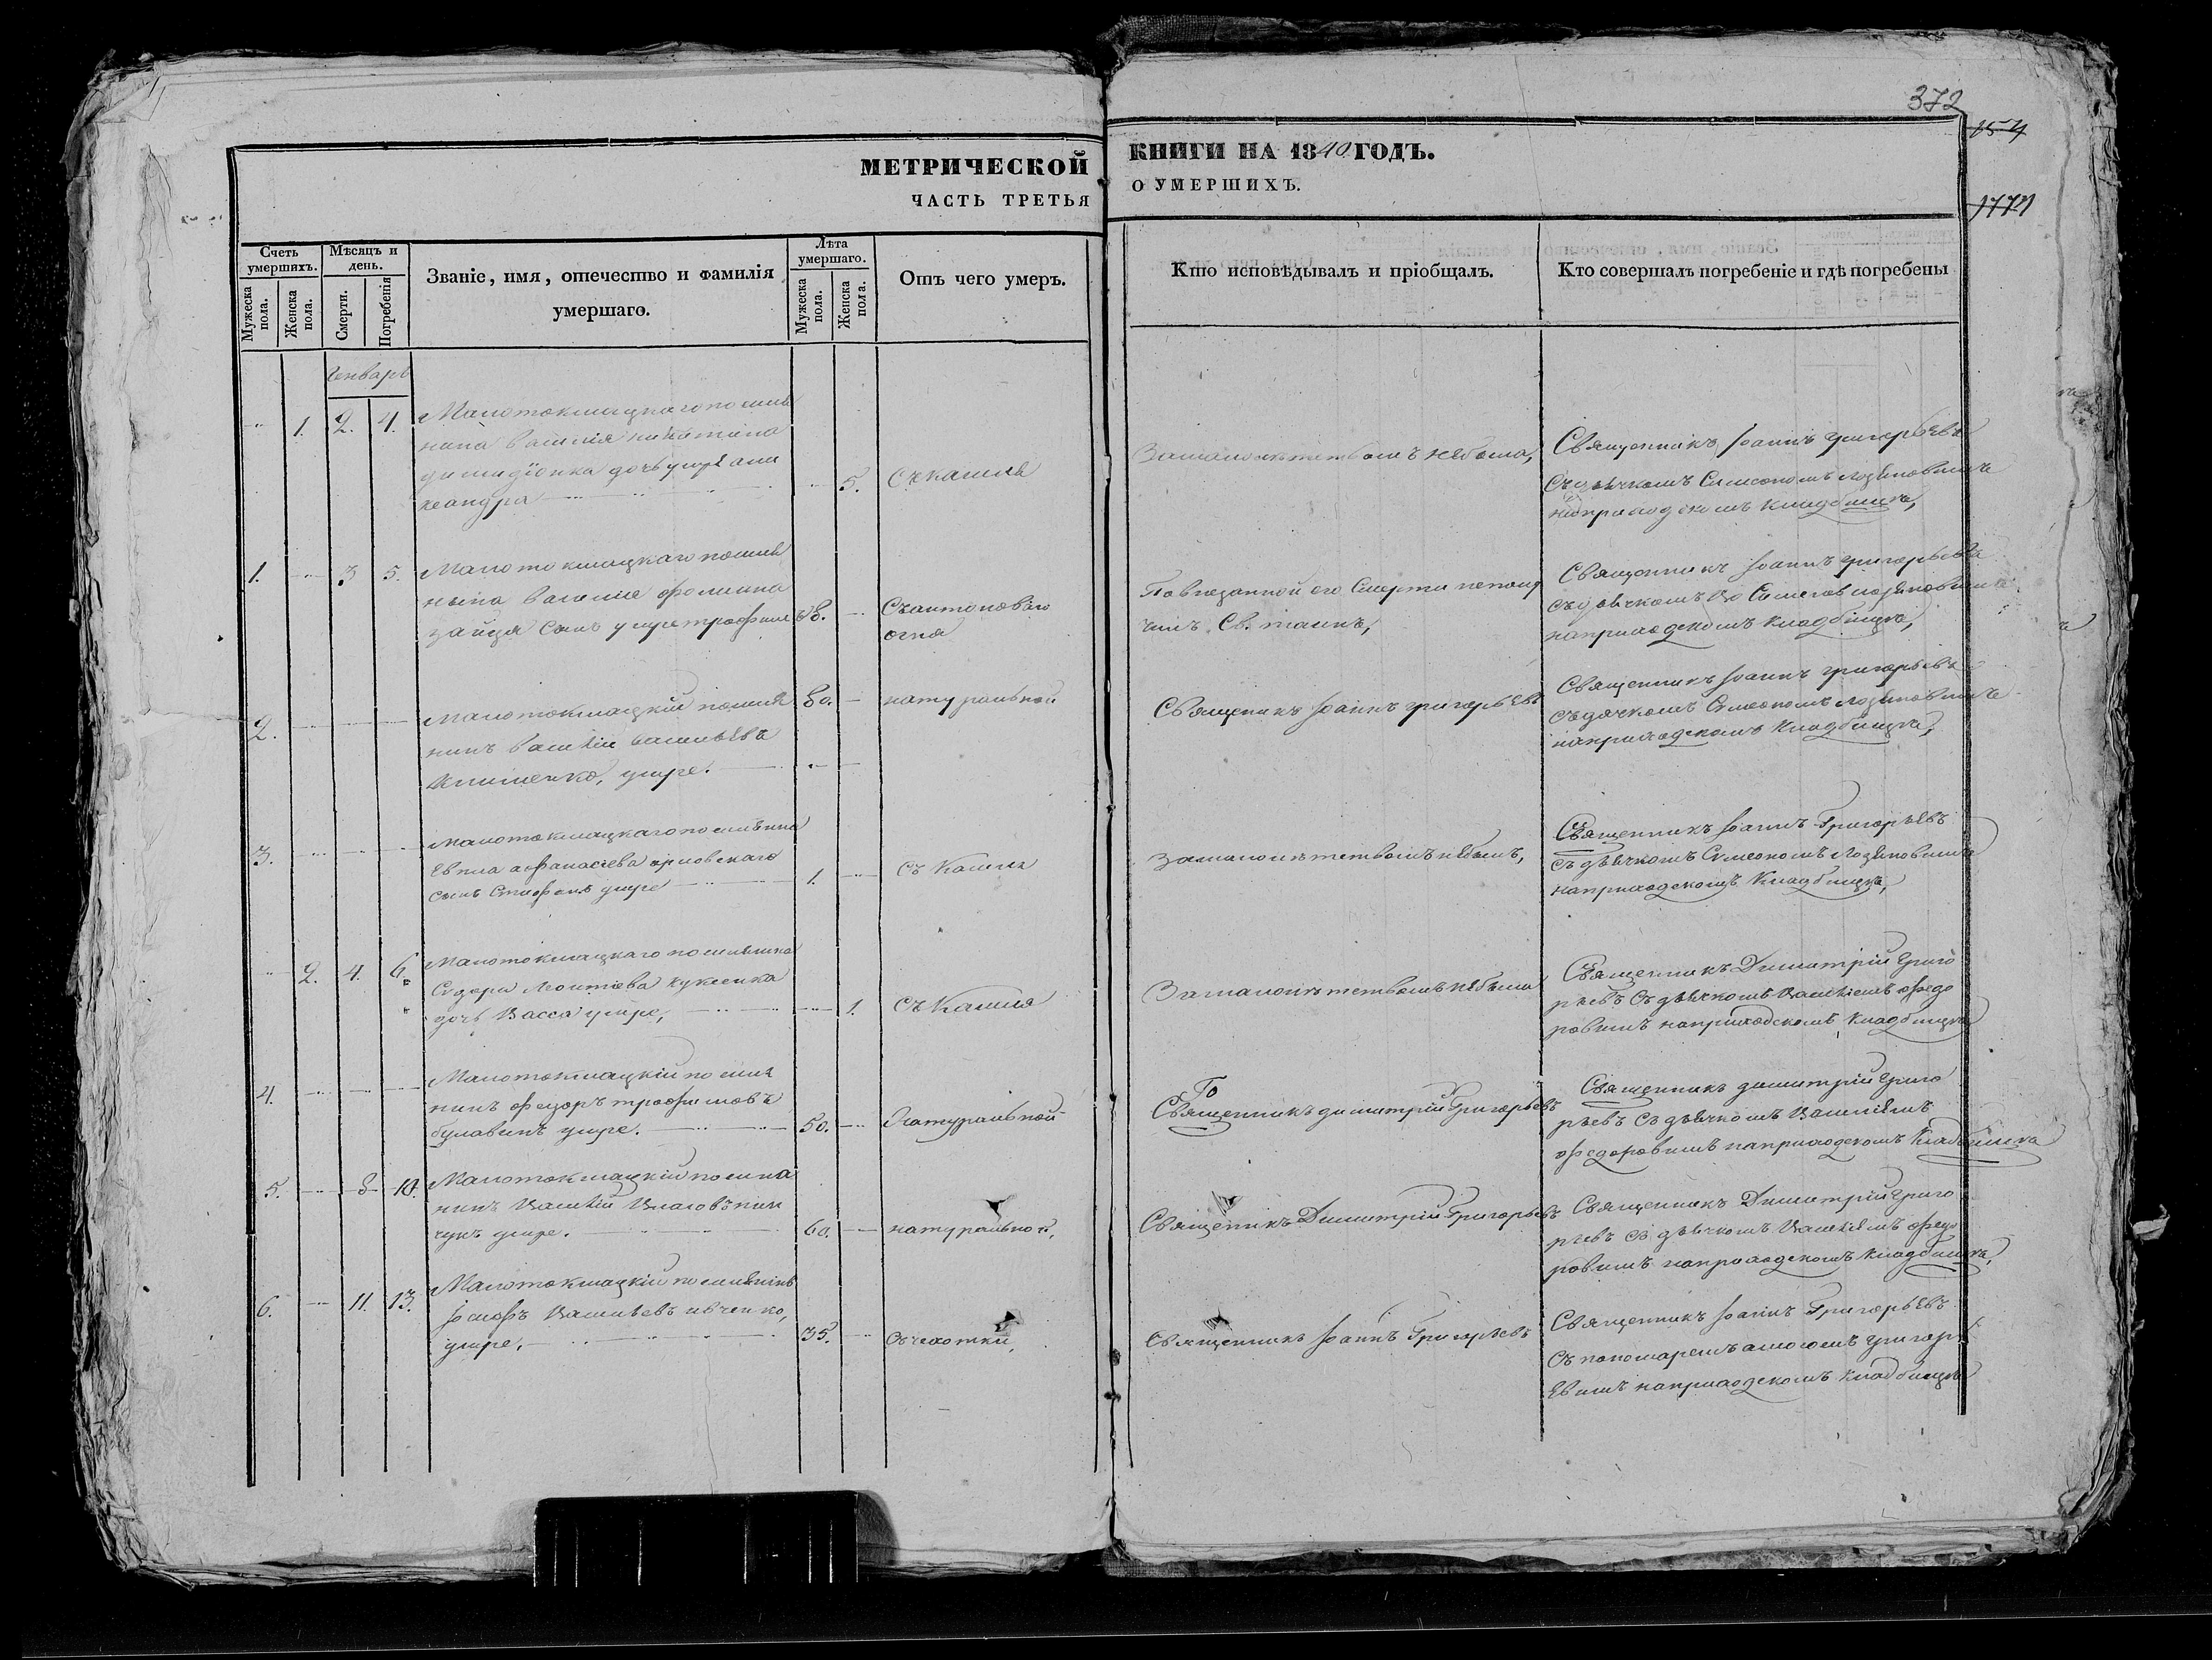 372
154
1774
МЕТРИЧЕСКОЙ КНИГИ НА 1840 ГОДЪ.
ЧАСТЬ ТРЕТЬЯ О УМЕРШИХЪ.
Счетъ умершихъ.
Мужеска пола.
Женска пола.
Мѣсяцъ и день.
Смерти.
Погребенія
Званіе, имя, отечество и фамилія
умершаго.
Лѣта умершаго.
Мужеска пола.
Женска пола.
Отъ чего умеръ.
Кто исповѣдывалъ и пріобщалъ.
Кто совершалъ погребеніе и гдѣ погребены
Генварь
1. 2. 4.
Малотокмацкаго поселя
нина Василія Никитина
дочь умре Але
ксандра
5.
Съ кашля
За малолетствомъ небыла,
Священникъ Іоаннъ Григорьевъ
съ дьячкомъ Симеономъ
на приходскомъ кладбище,
1. 3 5.
Малотокмацкаго поселя
нина Василие Фомина
зайца сынъ умре Трофимъ
38.
Съ антоноваго
огня
По внезапной его смерти неполу
чилъ Св. таинъ,
Священникъ Іоаннъ Григорьевъ
на приходскомъ кладбище,
2.
Малотокмацкій поселя
нинъ Василій Васильевъ
Клименко, умре.
80.
натуральной
Священикъ Іоаннъ Григорьевъ
Священникъ Іоаннъ Григорьевъ
съ дячкомъ Симеономъ
на приходскомъ кладбище,
3.
Малотокмацкаго поселянина
Евпла Афанасіева орловскаго
сынъ Стефанъ умре
1.
съ кашля
За малолетствомъ небылъ,
Священникъ Іоаннъ Григорьевъ
съ дьячкомъ Симеономъ
на приходскомъ кладбище,
2. 4. 6.
Малотокмацкаго поселянина
Сидора Леонтіева Куксенка
дочь Васса умре,
1.
Съ кашля
За малолетствомъ небыла
Священникъ Димитрій Григо
рьевъ съ дьячкомъ Василіемъ Федо
ровымъ на приходскомъ кладбище
4.
Малотокмацкій поселя
нинъ Федоръ Трофимовъ
булавинъ умре.
50.
Натуральной
То
Священникъ Димитрій Григорьевъ
Священникъ Димитрій Григо
рьевъ съ дьячкомъ Василіемъ
Федоровымъ на приходскомъ кладбище
5. 8 10.
Малотокмацкій поселя
нинъ Василій Власовъ
умре.
60.
натуральной,
Священикъ Димитрій Григорьевъ
Священникъ Димитрій Григо
рьевъ съ дьячкомъ Василіемъ Федо
ровымъ на приходскомъ кладбище,
6. 11. 13.
Малотокмацкій поселянинъ
Іосифъ Васильевъ Ивченко,
умре,
35.
Съ чахотки,
Священникъ Іоаннъ Григорьевъ
Священникъ Іоаннъ Григорьевъ
съ пономаремъ Григорь
евымъ на приходскомъ кладбище